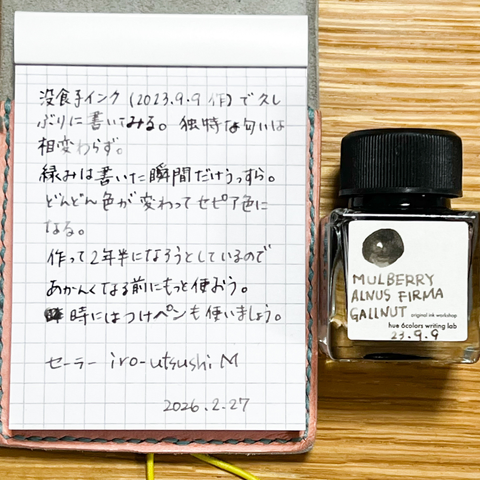 没食子インク (2023.9.9 作) で久し
ぶりに書いてみる。独特な匂いは
相変わらず。
緑みは書いた瞬間だけうっすら。
どんどん色が変わってセピア色に
なる。
作って2年半になろうとしているので
あかんくなる前にもっと使おう。
時にはつけペンも使いましょう。
セーラー iro-utsushi M
2026.2.27
MULBERRY
ALNUS FIRMA
GALLNUT
original ink workshop
hue 6colors writing lab
23.9.9